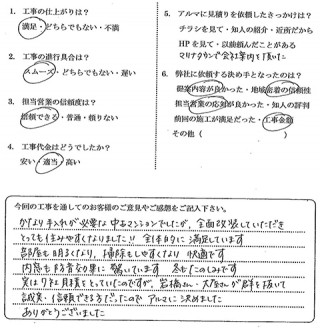 1. 工事の仕上がりは？
満足・どちらでもない・不満
2. 工事の進行具合は？
スムーズ・どちらでもない・遅い
3. 担当営業の信頼度は？
信頼できる・普通・頼りない
4. 工事代金はどうでしたか？
安い・適当・高い
5. アルマに見積りを依頼したきっかけは？
チラシを見て・知人の紹介・近所だから
HPを見て・以前頼んだことがある
マリナタウンで会社案内を頂いた
6. 弊社に依頼する決め手となったのは？
提案内容が良かった・地域密着の信頼性
担当営業の応対が良かった・知人の評判
前回の施工が満足だった・工事金額
その他（　　　）
今回の工事を通してのお客様のご意見やご感想をご記入下さい。
かなり手入れが必要な中古マンションでしたが、全面改装していただき
とっても住みやすくなりました!! 全体的に満足しています
部屋も明るくなり、掃除もしやすくなり快適です
内窓も防音効果に驚いています 冬もたのしみです
実は9社見積をとっていたのですが、岩橋さん、大屋さんが群を抜いて
誠実・信頼できる方だったので アルマに決めました
ありがとうございました